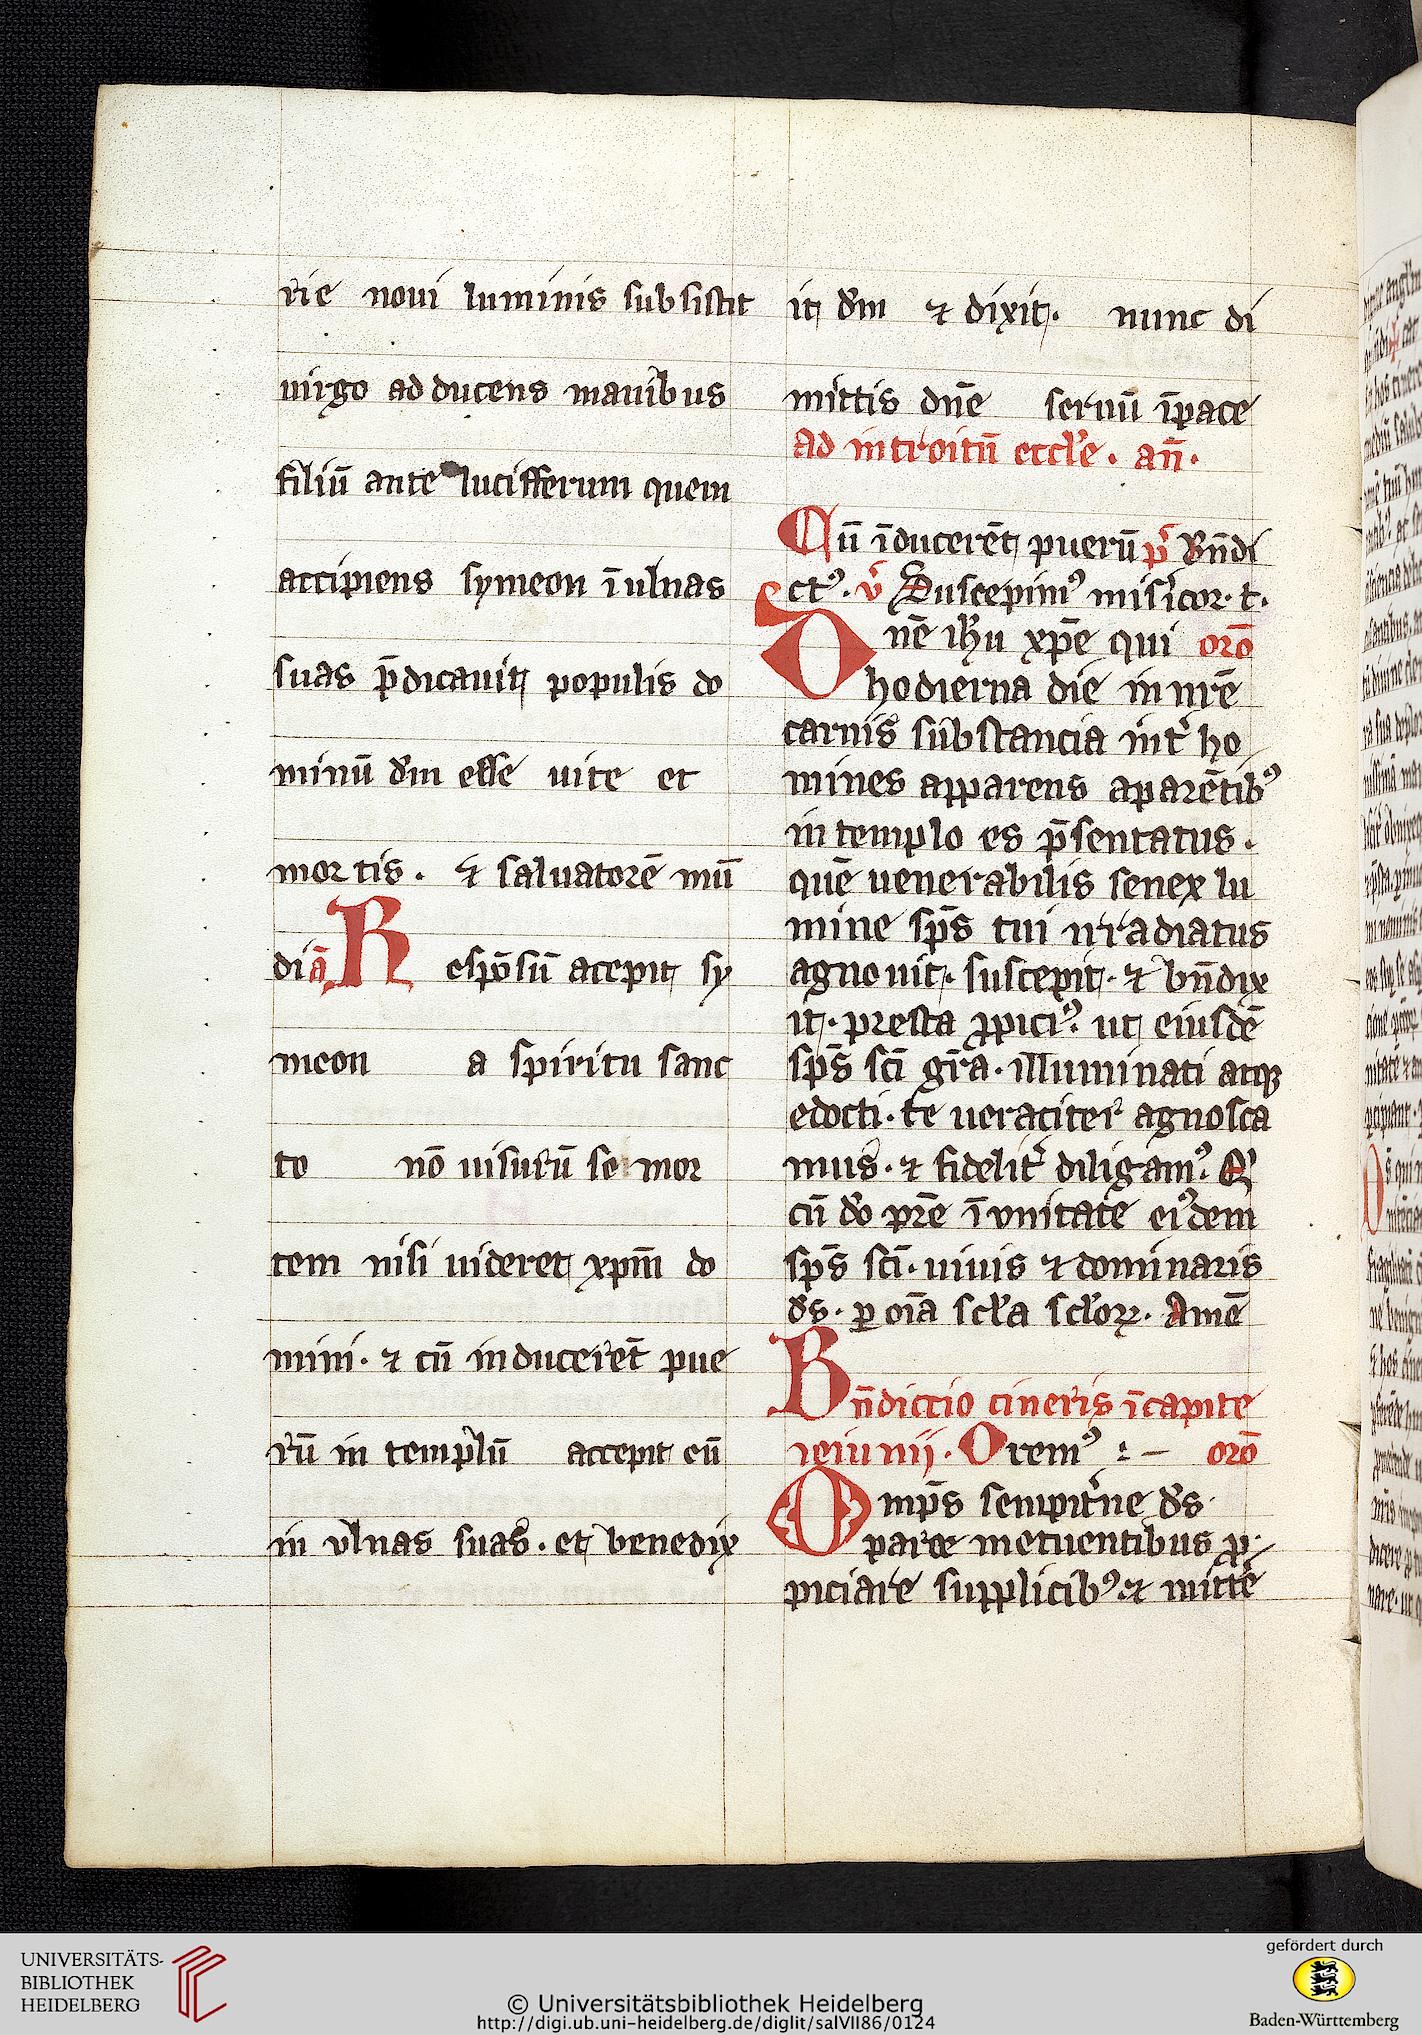 rie noui luminis subsistit
uirgo adducens manibus
filiū ante lucifferum quem
accipiens symeon ī ulnas
suas p̄dicauit populis do
minū dm̄ esse uite et
mortis. & saluatorē mū
di ā Respōsū acepit sy
meon a spiritu sanc
to nō uisurū se mor
tem nisi uideret xpm̄ do
mini. & cū inducerēt pue
rū in templū accepit eū
in vlnas suas. et benedix
it dm̄ & dixit. nunc di
mittis dn̄e seruū īpace
ad introitū eccl'e. an̄.
Cū īducerēt puerū p̄ Bn̄di
ctꝰ. v̄ Suscepimꝰ misicor. t.
Dn̄e ih̄u xp̄e qui orō
hodierna die in nr̄e
carnis substancia int̄ ho
mines apparens aparētibꝰ
in templo es p̄sentatus.
quē uenerabilis senex lu
mine sp̄s tui irradiatus
agnouit. suscepit. & bn̄dix
it. presta ꝓpiciꝰ. ut eiusdē
sp̄s sc̄i gr̄a. illuminati atqꝫ
edocti. te ueraciter agnosca
mus. & fidelit̄ diligamꝰ. Q
cū do p̄re ī vnitate eiꝰdem
sp̄s sc̄i. uiuis & dominaris
ds̄. ꝑ oīa scl'a scl'oꝝ. Amē
Bn̄dictio cineris īcapite
ieiunij. Oremꝰ :– orō
Omp̄s sempit̄ne ds̄
parce metuentibus ꝓ
piciare supplicibꝰ & mitte
UNIVERSITÄTS-
BIBLIOTHEK
HEIDELBERG
© Universitätsbibliothek Heidelberg
http://digi.ub.uni-heidelberg.de/diglit/salVII86/0124
gefördert durch
Baden-Württemberg